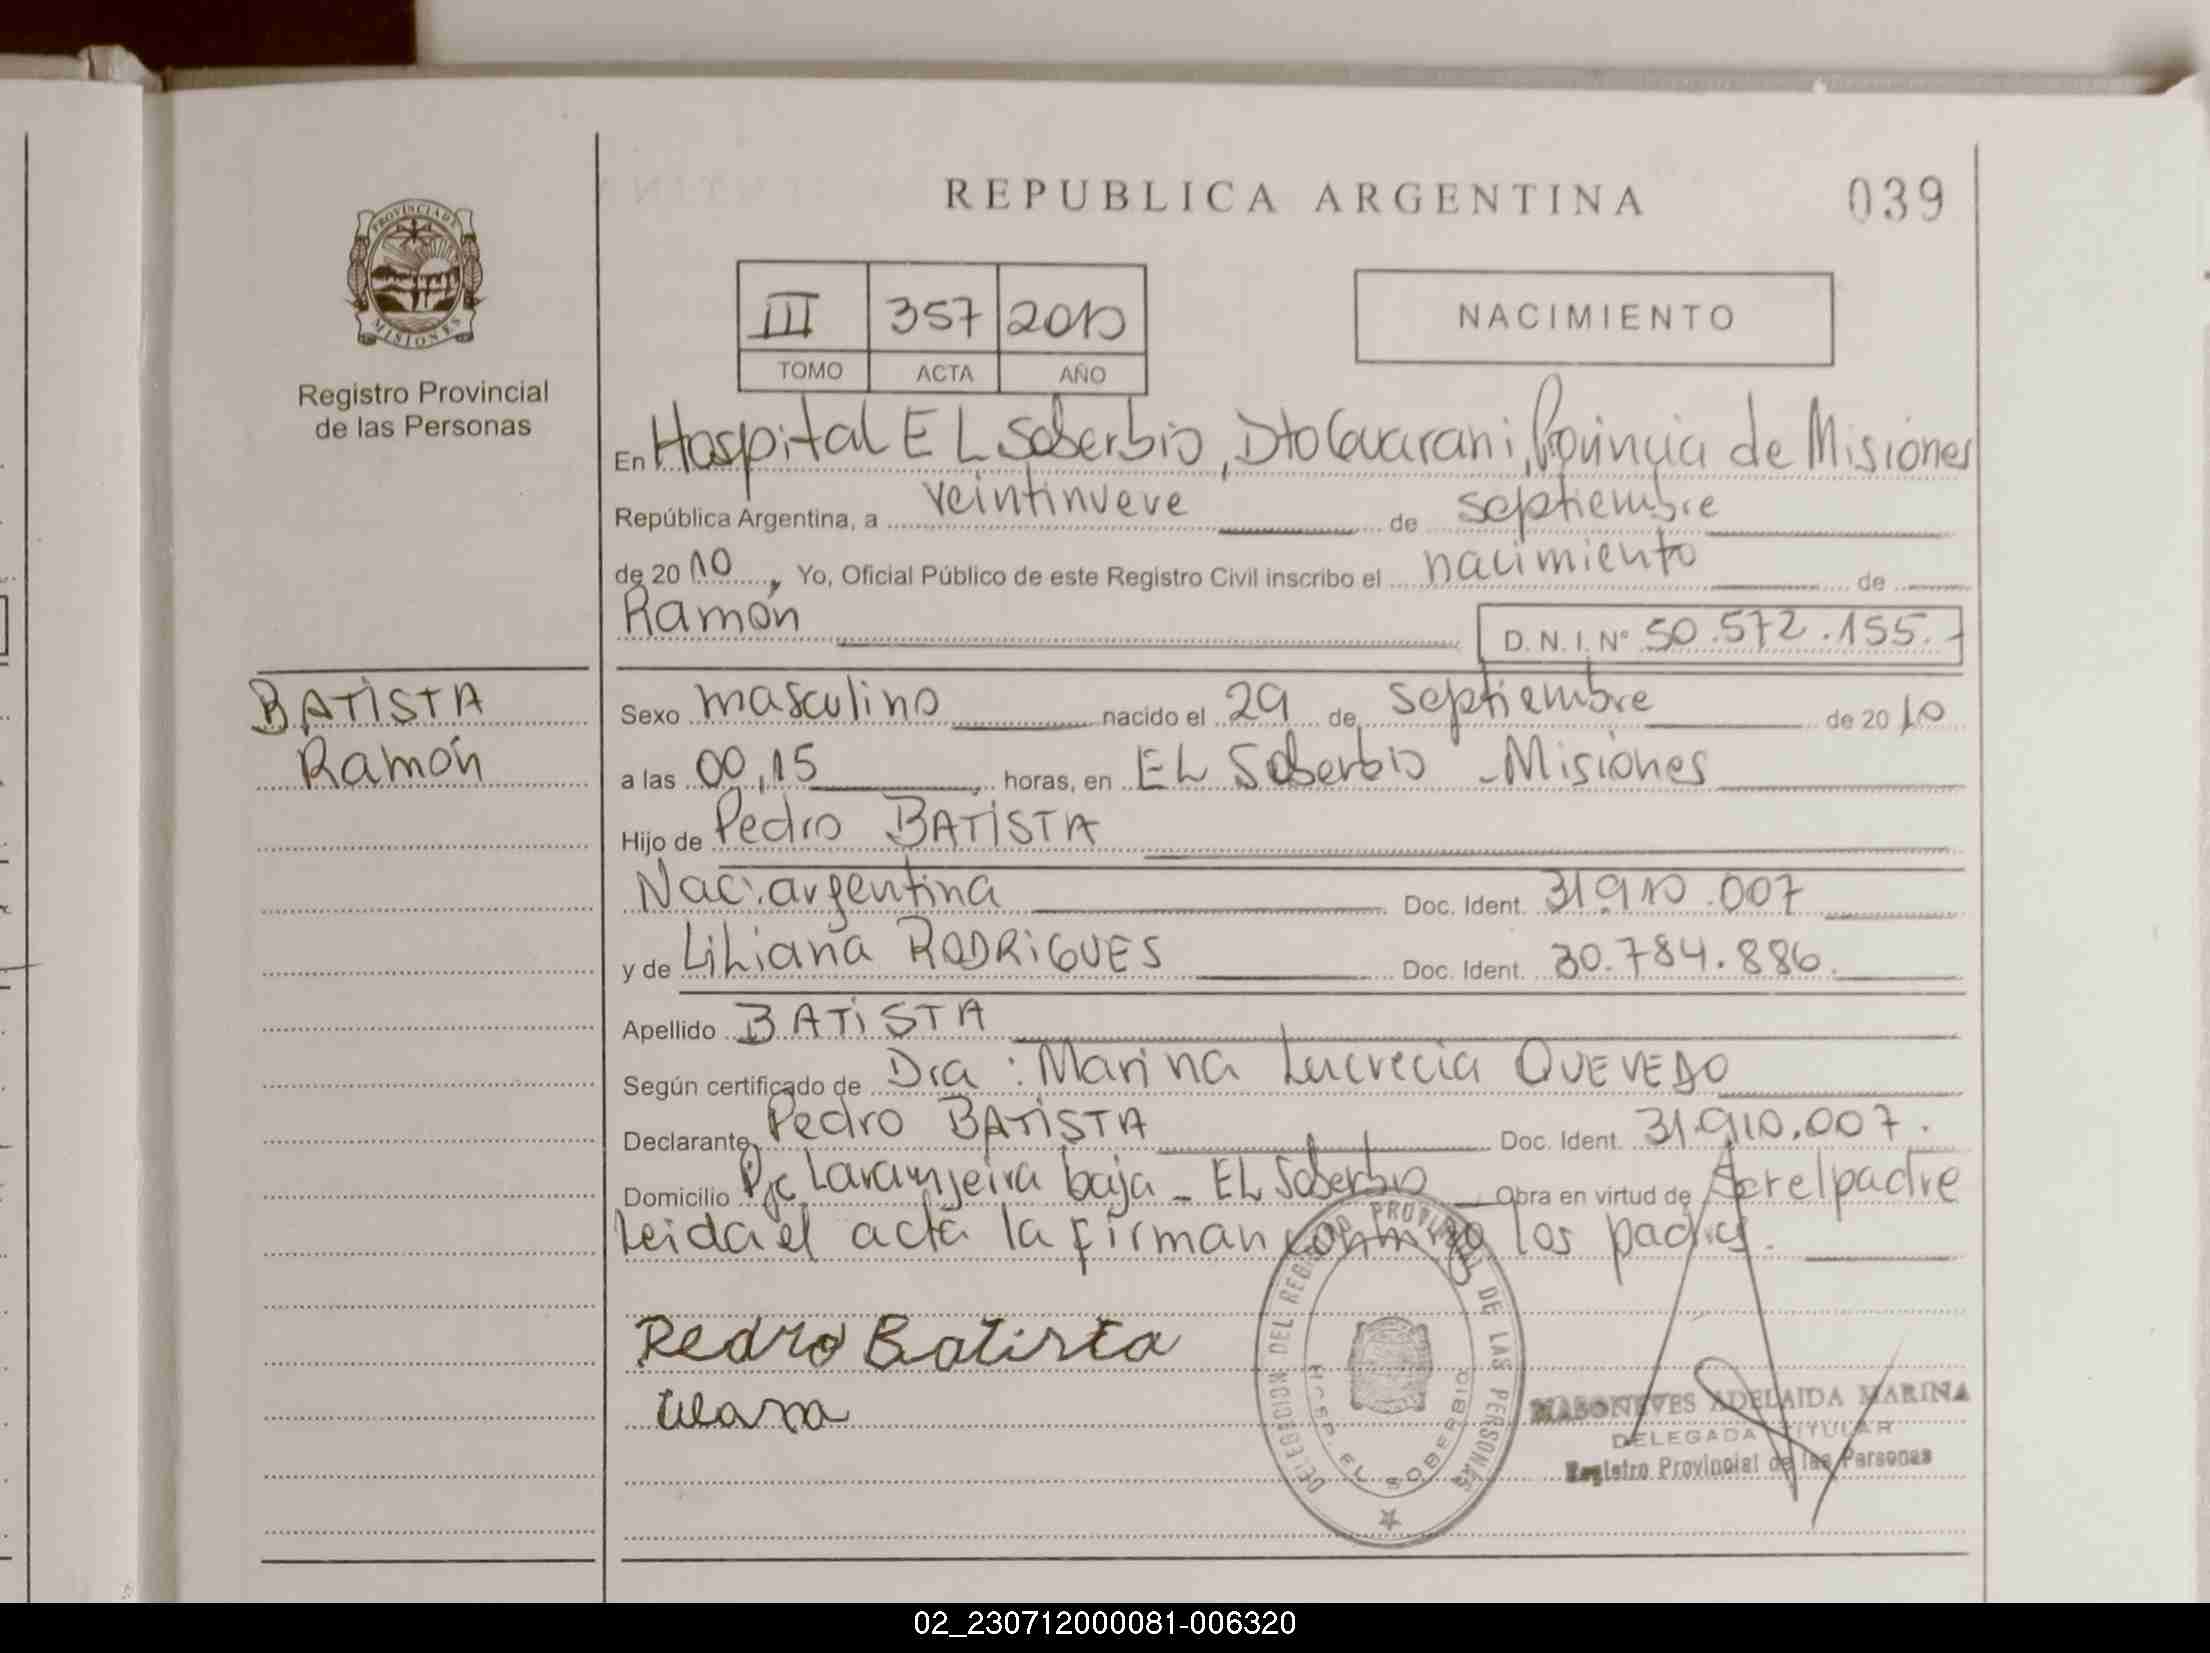 REPUBLICA ARGENTINA
039
PROVINCIA DE
MISIONES
Registro Provincial
de las Personas
III 357 2010
TOMO ACTA AÑO
NACIMIENTO
En Hospital EL Soberbio, Dto Guarani, Provincia de Misiones
República Argentina, a veintinueve de septiembre
de 20 10, Yo, Oficial Público de este Registro Civil inscribo el nacimiento de
Ramón D. N. I. N° 50.572.155.-
BATISTA
Ramón
Sexo masculino nacido el 29 de septiembre de 20 10
a las 00,15, horas, en EL Soberbio - Misiones
Hijo de Pedro BATISTA
Nac: argentina Doc. Ident. 31.910.007
y de Liliana RODRIGUES Doc. Ident. 30.784.886.
Apellido BATISTA
Según certificado de Dra: Marina Lucrecia QUEVEDO
Declarante Pedro BATISTA Doc. Ident. 31.910.007.
Domicilio Pje Laranjeira baja - EL Soberbio Obra en virtud de Ser el padre
Leida el acta la firman conmigo los padres.
Pedro Batista
DELEGACION DEL REGISTRO PROVINCIAL DE LAS PERSONAS
HOSP. EL SOBERBIO
ADELAIDA MARINA
DELEGADA TITULAR
Registro Provincial de las Personas
02_230712000081-006320